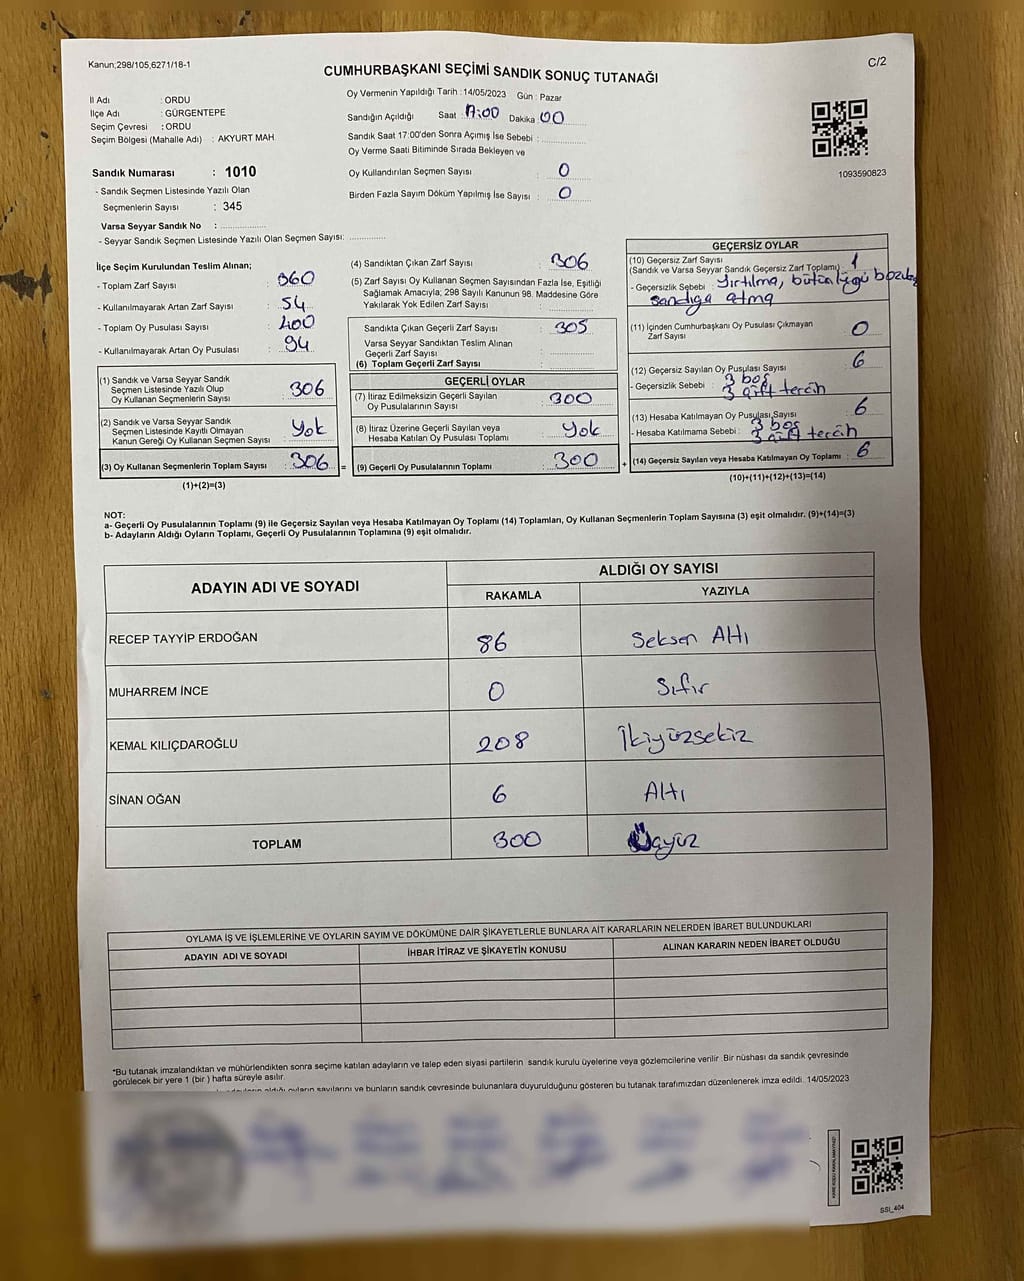 Kanun;298/105,6271/18-1
C/2
CUMHURBAŞKANI SEÇİMİ SANDIK SONUÇ TUTANAĞI
İl Adı : ORDU
İlçe Adı : GÜRGENTEPE
Seçim Çevresi : ORDU
Seçim Bölgesi (Mahalle Adı) : AKYURT MAH.
Sandık Numarası : 1010
- Sandık Seçmen Listesinde Yazılı Olan
Seçmenlerin Sayısı : 345
Varsa Seyyar Sandık No : ....................
- Seyyar Sandık Seçmen Listesinde Yazılı Olan Seçmen Sayısı: ............
Oy Vermenin Yapıldığı Tarih : 14/05/2023 Gün : Pazar
Sandığın Açıldığı Saat : 17:00 Dakika : 00
Sandık Saat 17:00'den Sonra Açımış İse Sebebi : ............
Oy Verme Saati Bitiminde Sırada Bekleyen ve
Oy Kullandırılan Seçmen Sayısı : 0
Birden Fazla Sayım Döküm Yapılmış İse Sayısı : 0
1093590823
İlçe Seçim Kurulundan Teslim Alınan;
- Toplam Zarf Sayısı : 360
- Kullanılmayarak Artan Zarf Sayısı : 54
- Toplam Oy Pusulası Sayısı : 400
- Kullanılmayarak Artan Oy Pusulası : 94
(1) Sandık ve Varsa Seyyar Sandık
Seçmen Listesinde Yazılı Olup
Oy Kullanan Seçmenlerin Sayısı : 306
(2) Sandık ve Varsa Seyyar Sandık
Seçmen Listesinde Kayıtlı Olmayan
Kanun Gereği Oy Kullanan Seçmen Sayısı : Yok
(3) Oy Kullanan Seçmenlerin Toplam Sayısı : 306 =
(1)+(2)=(3)
(4) Sandıktan Çıkan Zarf Sayısı : 306
(5) Zarf Sayısı Oy Kullanan Seçmen Sayısından Fazla İse, Eşitliği
Sağlamak Amacıyla; 298 Sayılı Kanunun 98. Maddesine Göre
Yakılarak Yok Edilen Zarf Sayısı : ............
Sandıkta Çıkan Geçerli Zarf Sayısı : 305
Varsa Seyyar Sandıktan Teslim Alınan
Geçerli Zarf Sayısı : ............
(6) Toplam Geçerli Zarf Sayısı :
GEÇERLİ OYLAR
(7) İtiraz Edilmeksizin Geçerli Sayılan
Oy Pusulalarının Sayısı : 300
(8) İtiraz Üzerine Geçerli Sayılan veya
Hesaba Katılan Oy Pusulası Toplamı : Yok
(9) Geçerli Oy Pusulalarının Toplamı : 300 +
GEÇERSİZ OYLAR
(10) Geçersiz Zarf Sayısı : 1
(Sandık ve Varsa Seyyar Sandık Geçersiz Zarf Toplamı)
- Geçersizlik Sebebi : Yırtılma, bütünlüğü bozulup
sandığa atma
(11) İçinden Cumhurbaşkanı Oy Pusulası Çıkmayan
Zarf Sayısı : 0
(12) Geçersiz Sayılan Oy Pusulası Sayısı : 6
- Geçersizlik Sebebi : 3 boş
3 çift tercih
(13) Hesaba Katılmayan Oy Pusulası Sayısı : 6
- Hesaba Katılmama Sebebi : 3 boş
3 çift tercih
(14) Geçersiz Sayılan veya Hesaba Katılmayan Oy Toplamı : 6
(10)+(11)+(12)+(13)=(14)
NOT:
a- Geçerli Oy Pusulalarının Toplamı (9) ile Geçersiz Sayılan veya Hesaba Katılmayan Oy Toplamı (14) Toplamları, Oy Kullanan Seçmenlerin Toplam Sayısına (3) eşit olmalıdır. (9)+(14)=(3)
b- Adayların Aldığı Oyların Toplamı, Geçerli Oy Pusulalarının Toplamına (9) eşit olmalıdır.
ADAYIN ADI VE SOYADI
ALDIĞI OY SAYISI
RAKAMLA YAZIYLA
RECEP TAYYİP ERDOĞAN 86 Seksen Altı
MUHARREM İNCE 0 Sıfır
KEMAL KILIÇDAROĞLU 208 İkiyüzsekiz
SİNAN OĞAN 6 Altı
TOPLAM 300 Üçyüz
OYLAMA İŞ VE İŞLEMLERİNE VE OYLARIN SAYIM VE DÖKÜMÜNE DAİR ŞİKAYETLERLE BUNLARA AİT KARARLARIN NELERDEN İBARET BULUNDUKLARI
ADAYIN ADI VE SOYADI İHBAR İTİRAZ VE ŞİKAYETİN KONUSU ALINAN KARARIN NEDEN İBARET OLDUĞU
*Bu tutanak imzalandıktan ve mühürlendikten sonra seçime katılan adayların ve talep eden siyasi partilerin sandık kurulu üyelerine veya gözlemcilerine verilir. Bir nüshası da sandık çevresinde
görülecek bir yere 1 (bir) hafta süreyle asılır.
aldığı oyların sayılarını ve bunların sandık çevresinde bulunanlara duyurulduğunu gösteren bu tutanak tarafımızdan düzenlenerek imza edildi. 14/05/2023
SSI_404